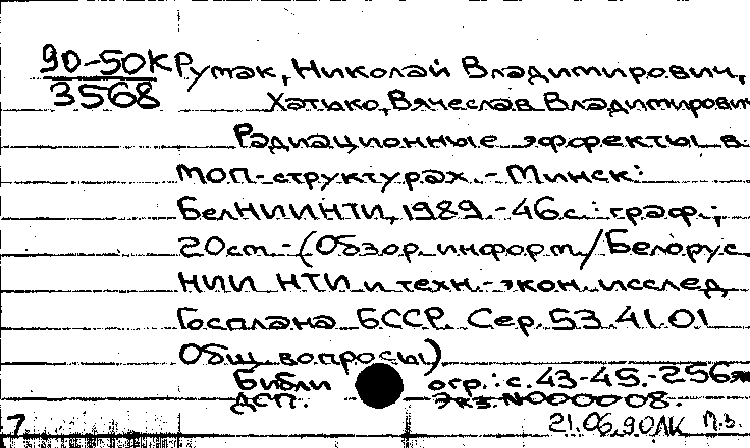 90-50К Румак, Николай Владимирович,
3568 Хатько, Вячеслав Владимирович
Радиационные эффекты в
МОП-структурах. - Минск:
БелНИИНТИ, 1989. - 46с.: граф.;
20см. - (Обзор. информ. / Белорус.
НИИ НТИ и техн.-экон. исслед.
Госплана БССР. Сер. 53.41.01
Общ. вопросы)
Библи огр.: с. 43-45. - 256
ДСП. Экз. №000008.
7 21.06.90 ЛК П.з.